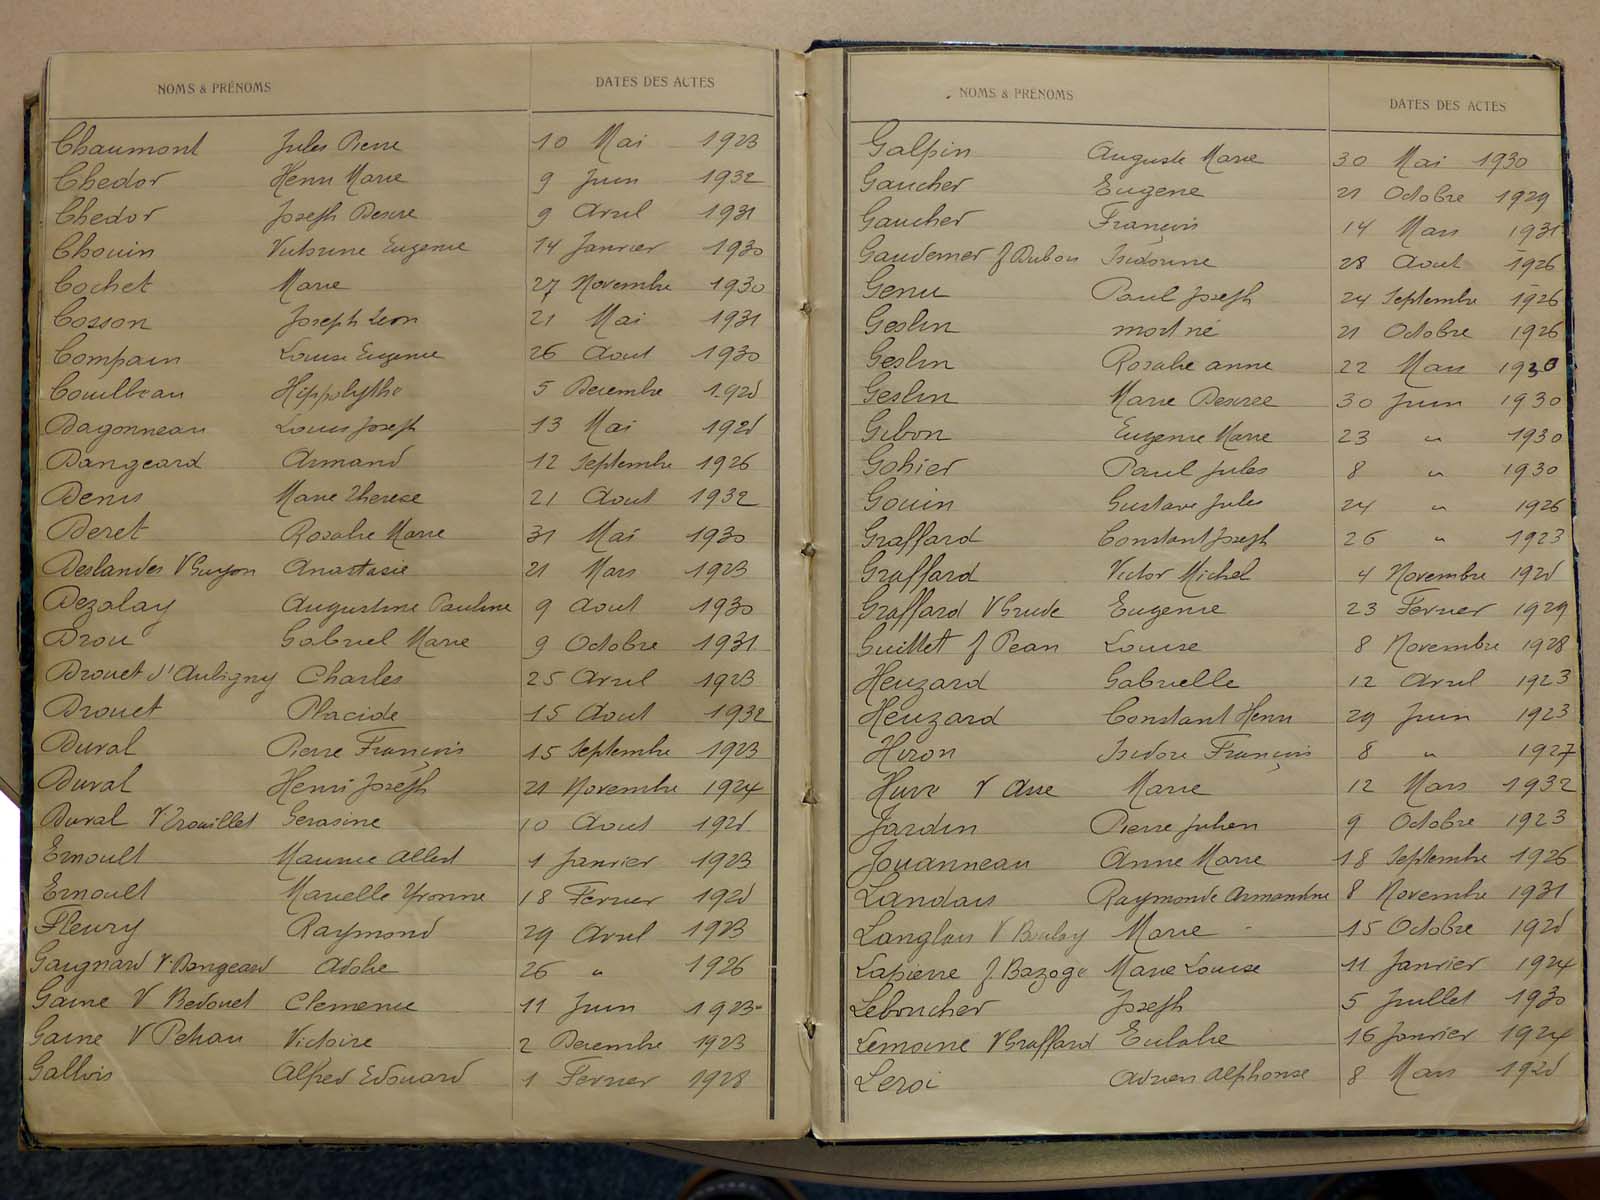 NOMS & PRÉNOMS DATES DES ACTES
Chaumont Jules Pierre 10 Mai 1923
Chedor Henri Marie 9 Juin 1932
Chedor Joseph Desire 9 Avril 1931
Chouin Victorine Eugenie 14 Janvier 1930
Cochet Marie 27 Novembre 1930
Cosson Joseph Leon 21 Mai 1931
Compain Louise Eugenie 26 Aout 1930
Couilbeau Hippolythe 5 Decembre
Dagonneau Louis Joseph 13 Mai
Dangeard Armand 12 Septembre 1926
Denis Marie Therese 21 Aout 1932
Deret Rosalie Marie 31 Mai 1930
Deslandes V Guyon Anastasie 21 Mars 1923
Dezalay Augustine Pauline 9 Aout 1930
Drou Gabriel Marie 9 Octobre 1931
Drouet d'Aubigny Charles 25 Avril 1923
Drouet Placide 15 Aout 1932
Duval Pierre François 15 Septembre 1923
Duval Henri Joseph 21 Novembre 1924
Duval V Trouillet Gerasine 10 Aout
Ernoult Maurice Albert 1 Janvier 1923
Ernoult Marcelle Yvonne 18 Fevrier
Fleury Raymond 29 Avril 1923
Gaignard V. Dangeard Adolie 26 " 1926
Gaine V Bedouet Clemence 11 Juin 1923
Gaine V Pehau Victoire 2 Decembre 1923
Gallois Alfred Edouard 1 Fevrier 1928
NOMS & PRÉNOMS DATES DES ACTES
Galpin Auguste Marie 30 Mai 1930
Gaucher Eugene 21 Octobre 1929
Gaucher François 14 Mars 1931
Gaudemer f Dubois Isidorine 28 Aout 1926
Genu Paul Joseph 24 Septembre 1926
Geslin mort né 21 Octobre 1926
Geslin Rosalie anne 22 Mars 1930
Geslin Marie Desiree 30 Juin 1930
Gibon Eugenie Marie 23 " 1930
Gohier Paul Jules 8 " 1930
Gouin Gustave Jules 24 " 1926
Graffard Constant Joseph 26 " 1923
Graffard Victor Michel 4 Novembre
Graffard V Grude Eugenie 23 Fevrier 1929
Guillet f Pean Louise 8 Novembre 1928
Heuzard Gabrielle 12 Avril 1923
Heuzard Constant Henri 29 Juin 1923
Hiron Isidore François 8 " 1927
Huve V Asse Marie 12 Mars 1932
Jardin Pierre Julien 9 Octobre 1923
Jouanneau Anne Marie 18 Septembre 1926
Landais Raymonde Armandine 8 Novembre 1931
Langlais V Boulay Marie 15 Octobre
Lapierre f Bazoge Marie Louise 11 Janvier 1924
Leboucher Joseph 5 Juillet 1930
Lemoine V Graffard Eulalie 16 Janvier 1924
Leroi Adrien Alphonse 8 Mars